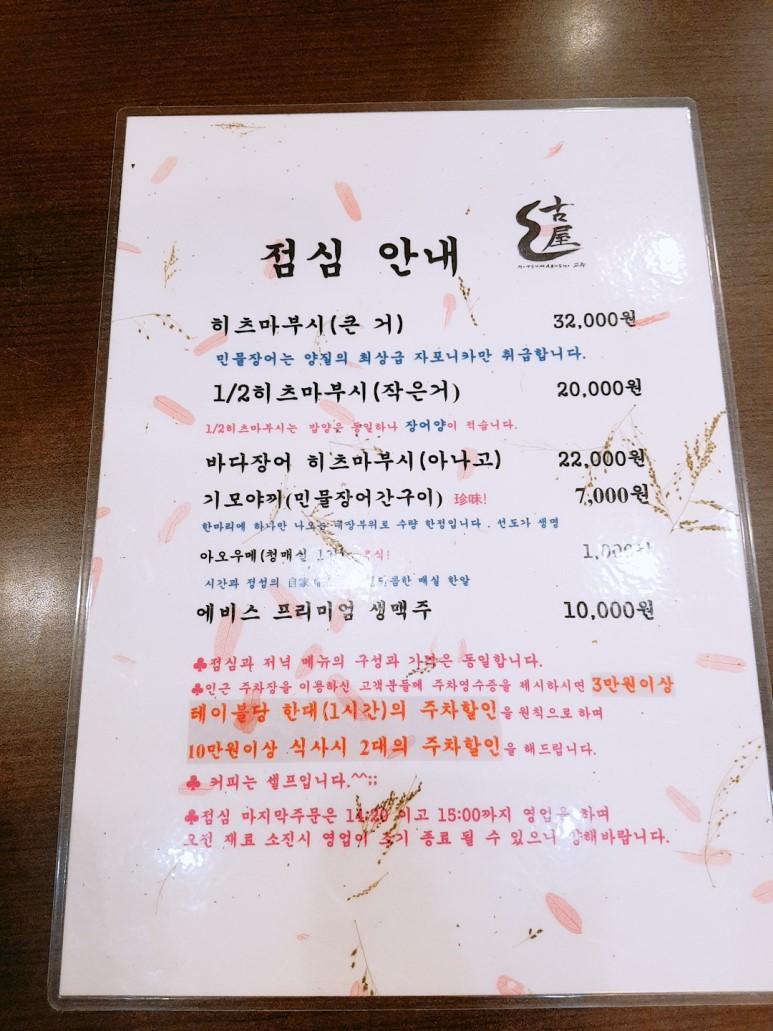 古屋
점심 안내
히츠마부시(큰 거) 32,000원
민물장어는 양질의 최상급 자포니카만 취급합니다.
1/2히츠마부시(작은거) 20,000원
1/2히츠마부시는 밥양은 동일하나 장어양이 적습니다.
바다장어 히츠마부시(아나고) 22,000원
기모야끼(민물장어간구이) 珍味! 7,000원
한마리에 하나만 나오는 내장부위로 수량 한정입니다. 선도가 생명
아오우메(청매실
시간과 정성의 自家 매실 한알
에비스 프리미엄 생맥주 10,000원
♣점심과 저녁 메뉴의 구성과 가격은 동일합니다.
♣인근 주차장을 이용하신 고객분들께 주차영수증을 제시하시면 3만원이상
테이블당 한대(1시간)의 주차할인을 원칙으로 하며
10만원이상 식사시 2대의 주차할인을 해드립니다.
♣ 커피는 셀프입니다.^^;;
♣점심 마지막주문은 14:20 이고 15:00까지 영업을 하며
오전 재료 소진시 영업이 조기 종료 될 수 있으니 양해바랍니다.